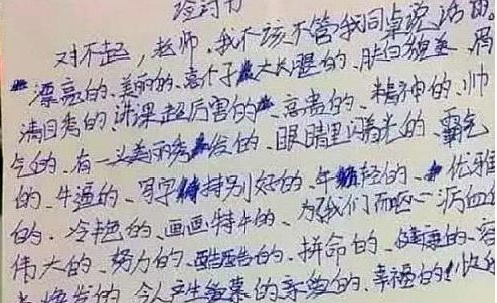 检讨书
对不起，老师，我不该不管我同桌说话的。
漂亮的、美丽的、高个子、大长腿的、肤白貌美、眉
清目秀的、讲课超厉害的、高贵的、精神的、帅
气的、有一头美丽秀发的、眼睛里闪着光的、霸气
的、牛逼的、写字特别好的、年轻的、优雅
的、冷艳的、画画特牛的、为我们而呕心沥血的
伟大的、努力的、酷酷的、拼命的、健康的、容
焕发的、令人产生羡慕的亲爱的、幸福的、快